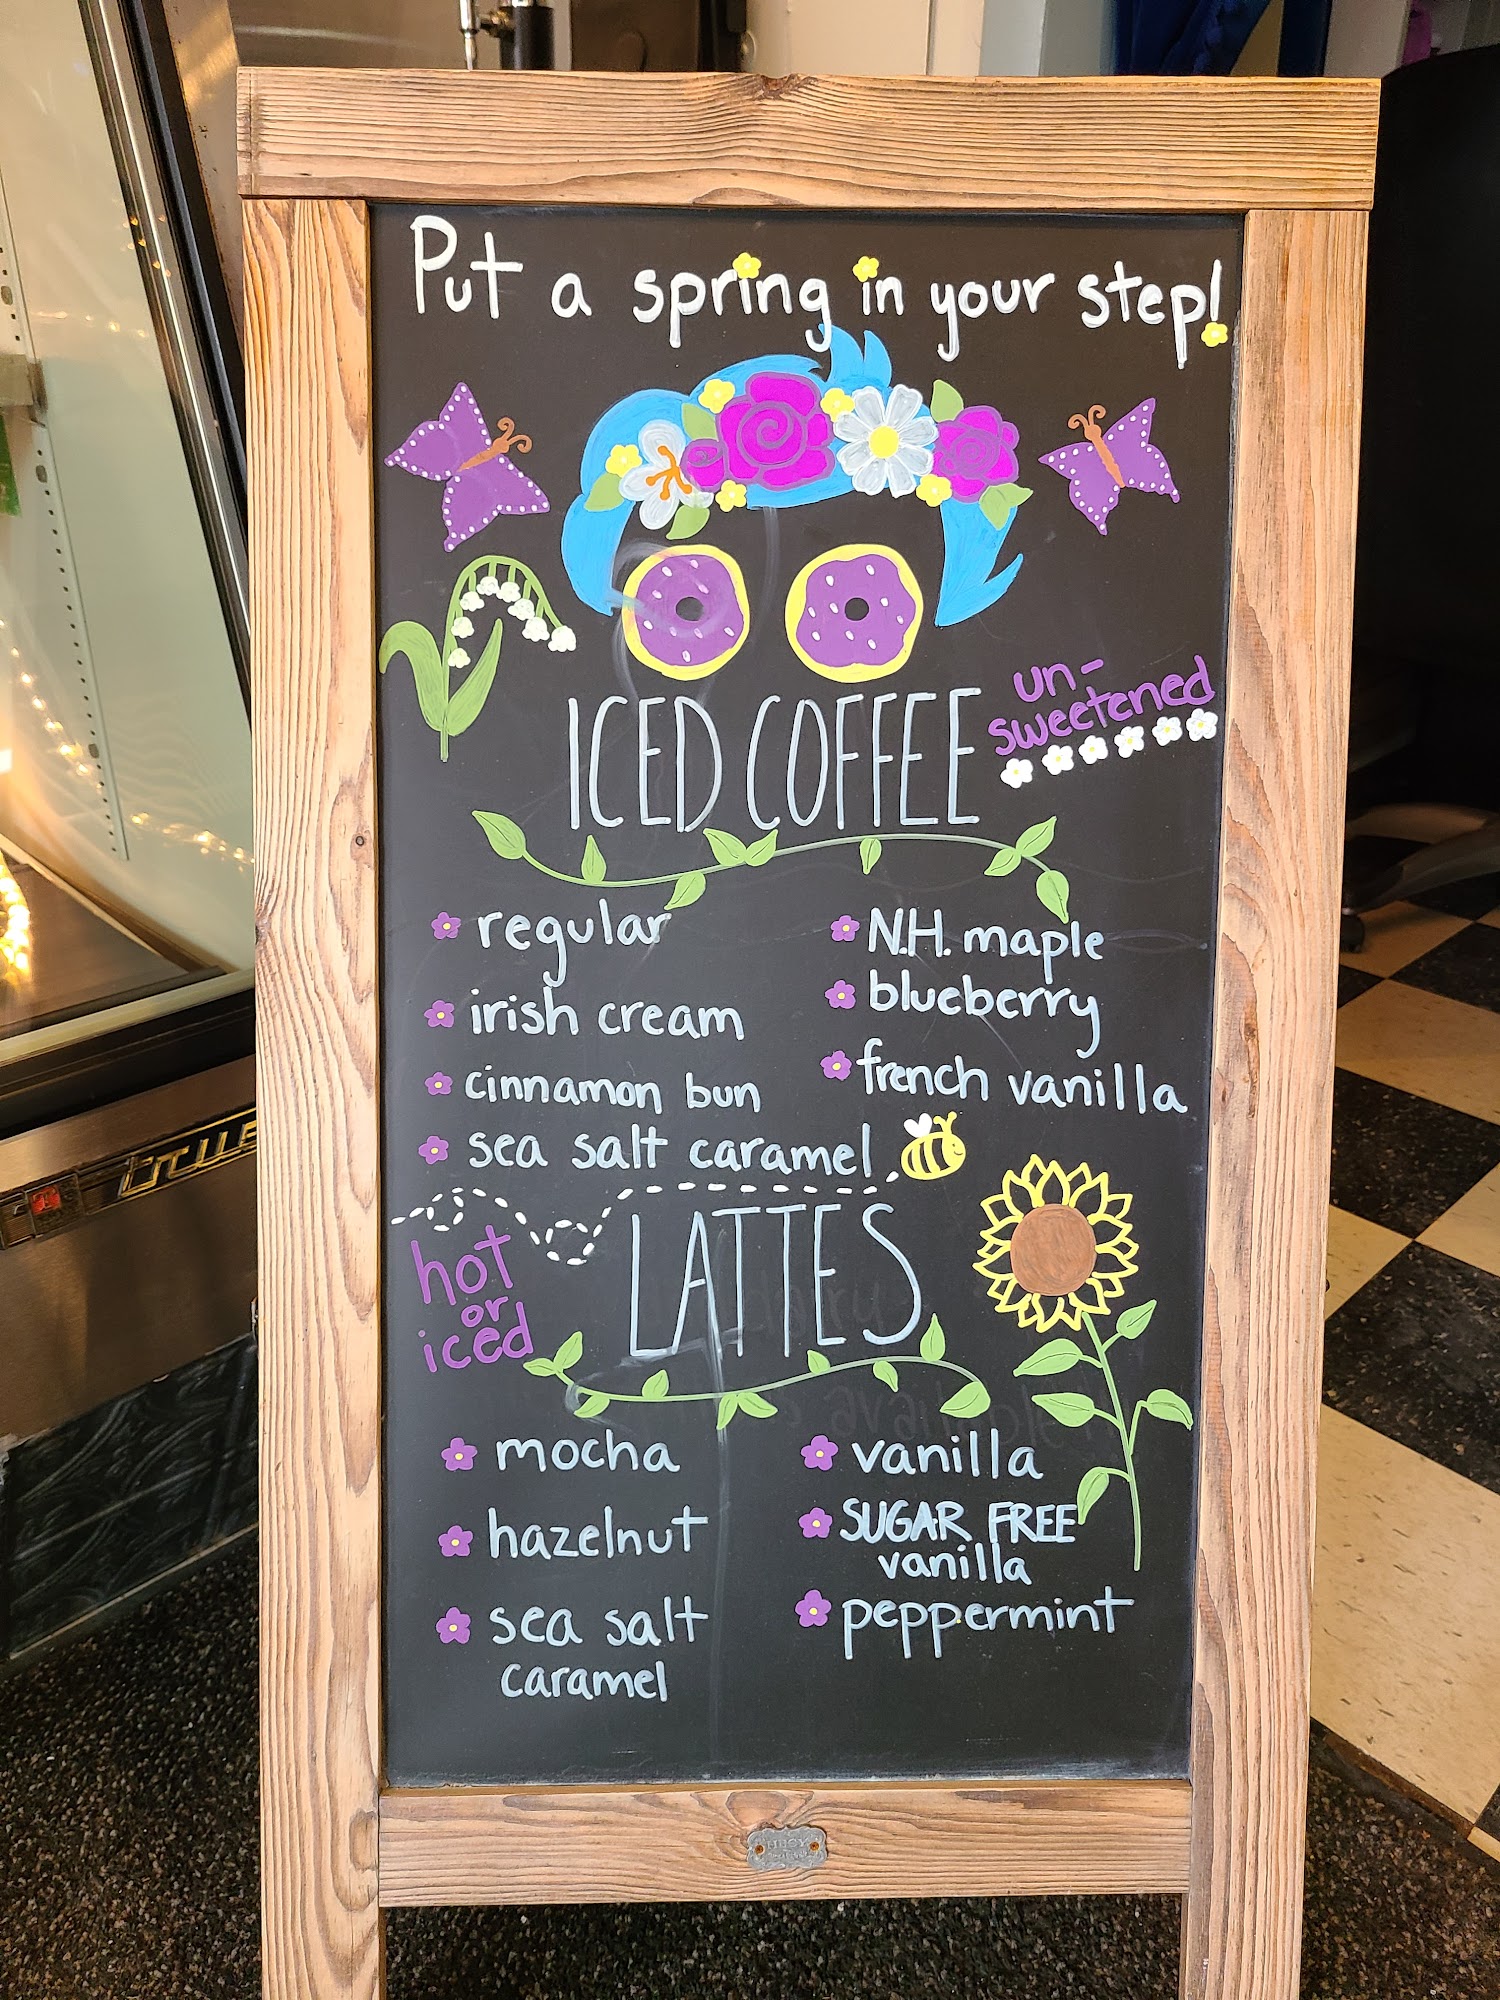 Put a spring in your step!
ICED COFFEE
un-
sweetened
regular
irish cream
cinnamon bun
sea salt caramel
N.H. maple
blueberry
french vanilla
LATTES
hot
or
iced
mocha
hazelnut
sea salt
caramel
vanilla
SUGAR FREE
vanilla
peppermint
true
available